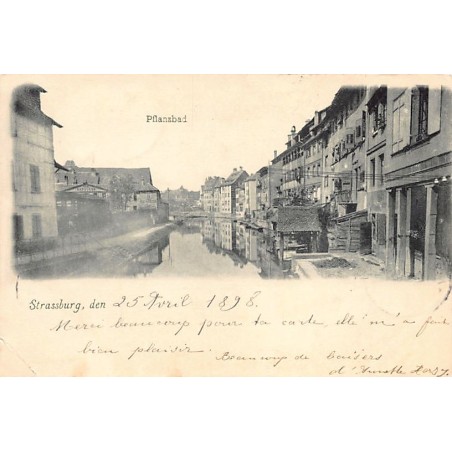 Pflansbad
Strassburg, den 25 Avril 1898.
Merci beaucoup pour ta carte, elle m'a fait
bien plaisir. Beaucoup de baisers
d'